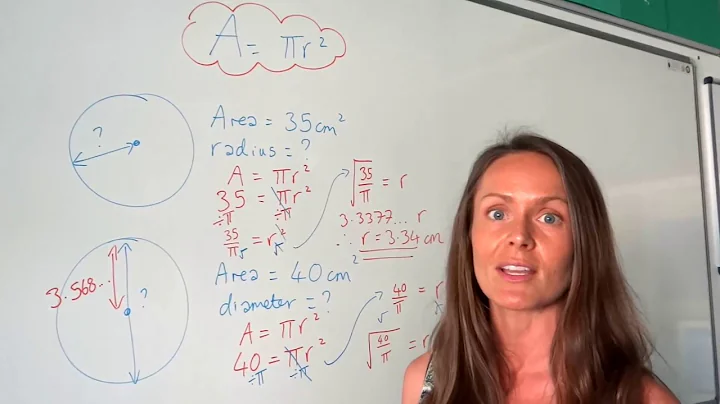 A = πr²
?
Area = 35cm²
radius = ?
A = πr²
35 = πr²
÷π ÷π
35/π = r²
√ √
√35/π = r
3.3377... r
∴ r = 3.34 cm
3.568..
?
Area = 40cm²
diameter = ?
A = πr²
40 = πr²
÷π ÷π
40/π = r
√
√40/π = r